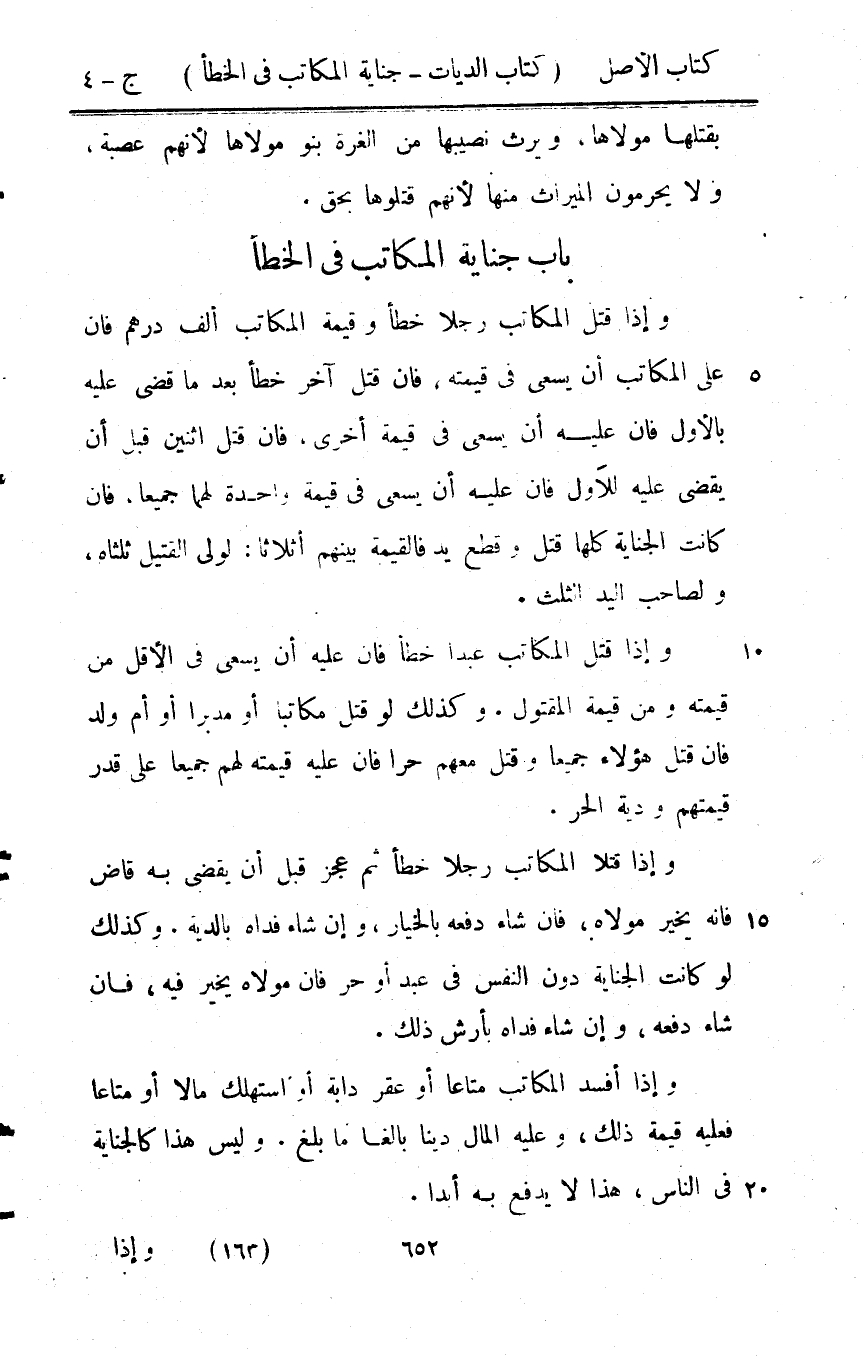 كتاب الأصل ( كتاب الديات - جناية المكاتب فى الخطأ ) ج - ٤
بقتلهـا مولاها، و يرث نصيبها من الغرة بنو مولاها لأنهم عصبة،
و لا يحرمون الميراث منها لأنهم قتلوها بحق .
باب جناية المكاتب فى الخطأ
و إذا قتل المكاتب رجلا خطأ و قيمة المكاتب ألف درهم فان
على المكاتب أن يسعى فى قيمته ، فان قتل آخر خطأ بعد ما قضى عليه ٥
بالأول فان عليـــه أن يسعى فى قيمة أخرى، فان قتل اثنين قبل أن
يقضى عليه للأول فان عليـه أن يسعى فى قيمة واحـدة لهما جميعا، فان
كانت الجناية كلها قتل و قطع يد فالقيمة بينهم أثلاثا : لولى القتيل ثلثاه ،
و لصاحب اليد الثلث .
و إذا قتل المكاتب عبدا خطأ فان عليه أن يسعى فى الأقل من ١٠
قيمته و من قيمة المقتول . و كذلك لو قتل مكاتبا أو مدبرا أو أم ولد
فان قتل هؤلاء جميعا و قتل معهم حرا فان عليه قيمته لهم جميعا على قدر
قيمتهم و دية الحر .
و إذا قتلا المكاتب رجلا خطأ ثم عجز قبل أن يقضى بـه قاض
فانه يخير مولاه ، فان شاء دفعه بالخيار ، و إن شاء فداه بالدية . و كذلك ١٥
لو كانت الجناية دون النفس فى عبد أو حر فان مولاه يخير فيه ، فـان
شاء دفعه ، و إن شاء فداه بأرش ذلك .
و إذا أفسد المكاتب متاعا أو عقر دابة أو استهلك مالا أو متاعا
فعليه قيمة ذلك ، و عليه المال دينا بالغـا ما بلغ . و ليس هذا كالجناية
فى الناس ، هذا لا يدفع بـه أبدا . ٢٠
٦٥٢ (١٦٣) و إذا